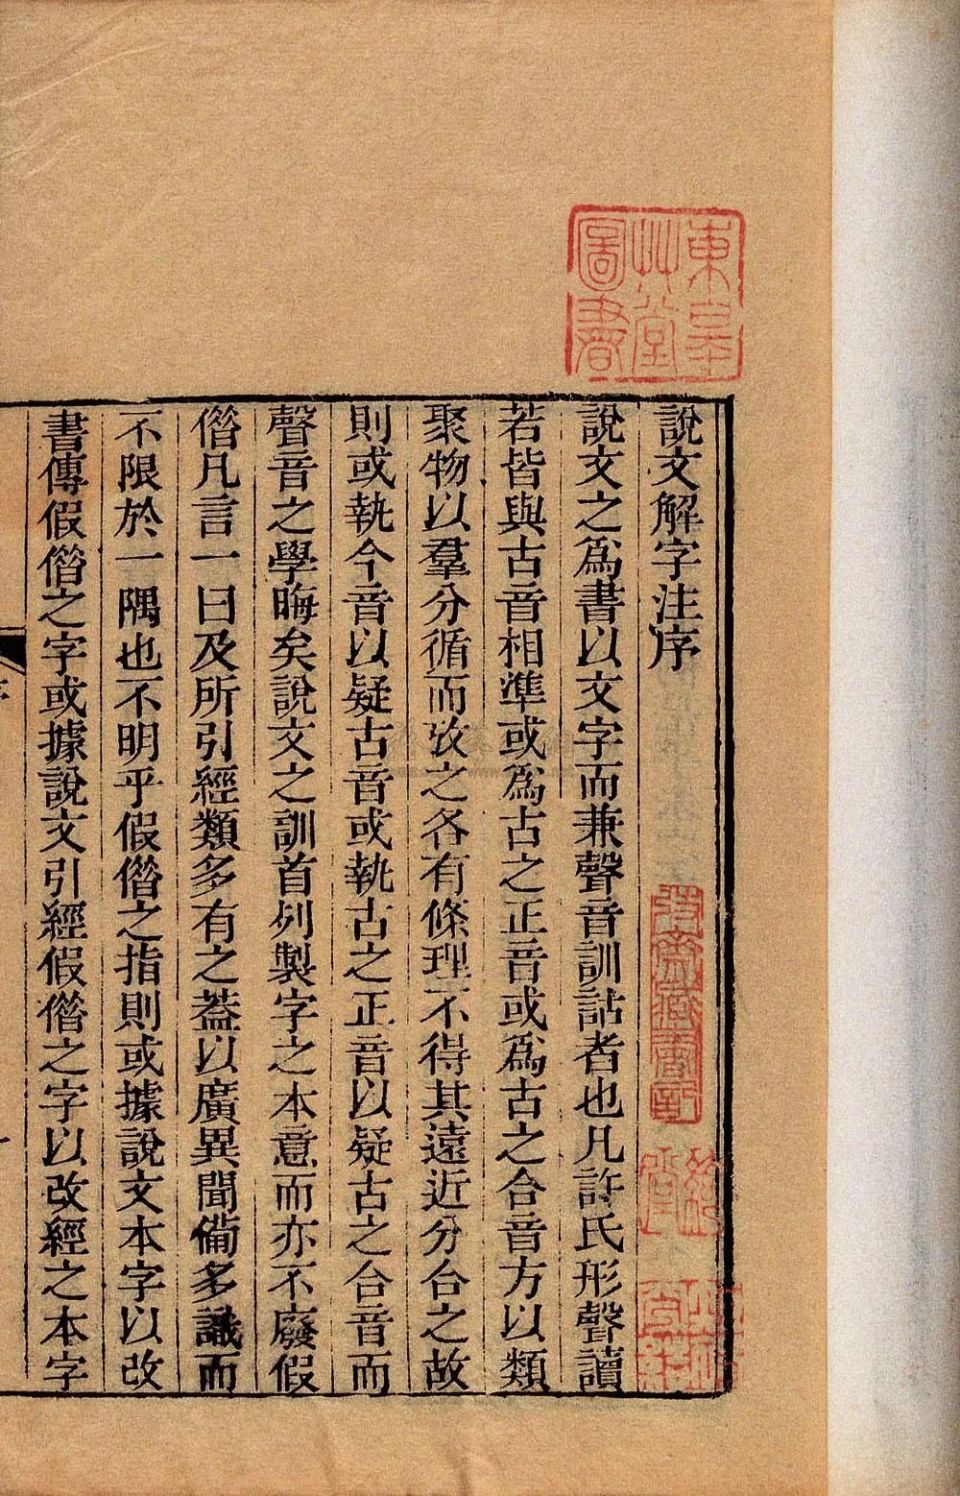 說文解字注序
說文之爲書以文字而兼聲音訓詁者也凡許氏形聲讀
若皆與古音相準或爲古之正音或爲古之合音方以類
聚物以羣分循而攷之各有條理不得其遠近分合之故
則或執今音以疑古音或執古之正音以疑古之合音而
聲音之學晦矣說文之訓首列製字之本意而亦不廢假
僭凡言一曰及所引經類多有之葢以廣異聞僃多識而
不限於一隅也不明乎假僭之指則或據說文本字以改
書傳假僭之字或據說文引經假僭之字以改經之本字
東皋
艸堂
圖書